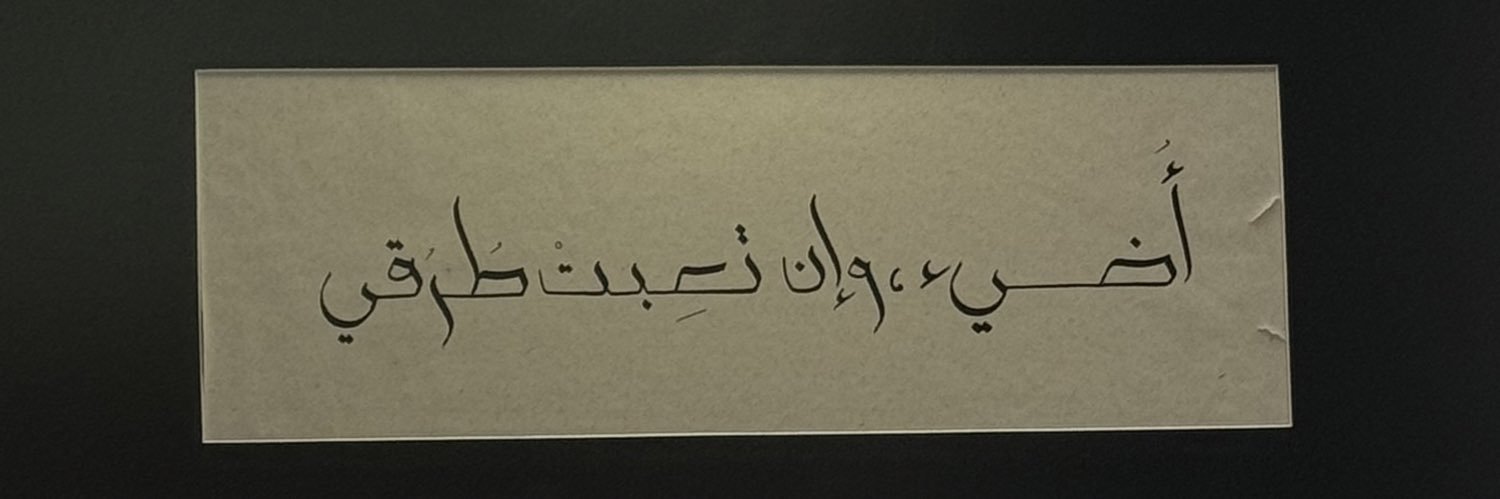 أُضيء، وإن تعِبتْ طُرُقي